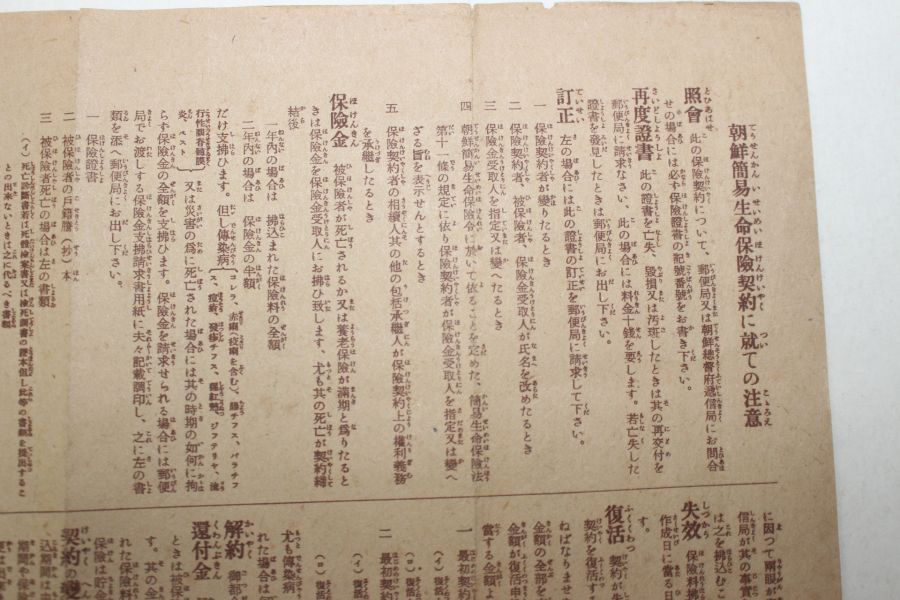 朝鮮簡易生命保險契約に就ての注意
照會 此の保險契約について、郵便局又は朝鮮總督府遞信局にお問合
せの場合には必ず保險證書の記號番號をお書き下さい。
再度證書 此の證書を亡失、毀損又は汚斑したときは其の再交付を
郵便局に請求なさい、此の場合には料金十錢を要します。若亡失した
證書を發見したときは郵便局にお出し下さい。
訂正 左の場合には此の證書の訂正を郵便局に請求して下さい。
一 保險契約者が變りたるとき
二 保險契約者、被保險者、保險金受取人が氏名を改めたるとき
三 保險金受取人を指定又は變へたるとき
四 朝鮮簡易生命保險令に於いて依ることを定めた、簡易生命保險法
第十一條の規定に依り保險契約者が保險金受取人を指定又は變へ
ざる旨を表示せんとするとき
五 保險契約者の相續人其の他の包括承繼人が保險契約上の權利義務
を承繼したるとき
保險金 被保險者が死亡されるか又は養老保險が滿期と爲りたると
きは保險金を保險金受取人にお拂ひ致します、尤も其の死亡が契約締
結後
一年內の場合は 拂込まれた保險料の全額
二年內の場合は 保險金の半額
だけ支拂ひます。但し傳染病(コレラ、赤痢(疫痢を含む)、腸チフス、パラチフ
ス、痘瘡、發疹チフス、猩紅熱、ジフテリヤ、流
行性腦脊髓膜
炎、ペスト)又は災害の爲に死亡された場合には其の時期の如何に拘
らず保險金の全額を支拂ひます。保險金を請求せられる場合には郵便
局でお渡しする保險金支拂請求書用紙に夫々記載調印し、之に左の書
類を添へ郵便局にお出し下さい。
一 保險證書
二 被保險者の戶籍謄(抄)本
三 被保險者死亡の場合は左の書類
(イ)死亡診斷書若は死體檢案書又は檢死調書の謄本但し此等の書類を提出するこ
との出來ないときは之に代るべき書類
に因つて兩眼が
信局が其の事實
は之を拂込むこ
失效 保險料拂
作成日に當る日
す。
復活 契約が失
契約を復活する
ねばなりませ
金額の全部を
金額が復活申
當する金額よ
一 最初契約
(イ)復活
(ロ)復活
二 最初契約
(イ)復活
(ロ)復活
尤も傳染病
れた場合は
解約 御都
還付金
ときは被保
す。其の金
れた保險料
保險は貯金
契約の變
込期間
期間や保